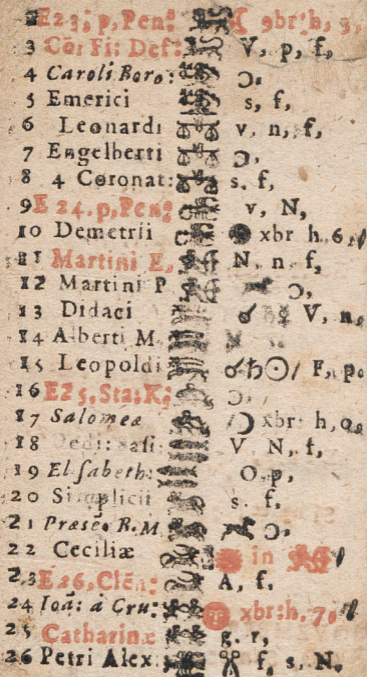 E23; p, Pen: 9br: h, 3,
3 Cõ: Fi: Def: V, p, f,
4 Caroli Boro: Ɔ,
5 Emerici s, f,
6 Leonardi v, n, f,
7 Engelberti Ɔ,
8 4 Coronat: s. f,
9 E 24. p, Pen: v, N,
10 Demetrii xbr h. 6,
11 Martini E, N, n, f,
12 Martini P Ɔ,
13 Didaci ☌ V, n,
14 Alberti M
15 Leopoldi ☌♄☉, F, p.
16 E25, Sta: K; Ɔ,
17 Salomeæ xbr: h, 0,
18 Dedi: V N, f,
19 Elsabeth: O, p,
20 Simplicii s. f,
21 Præsẽ: B. M Ɔ,
22 Ceciliæ in
23 E26, Clẽn: A, f,
24 Ioã: a Cru: xbr: h. 7,
25 Catharinæ g. r,
26 Petri Alex f, s, N,